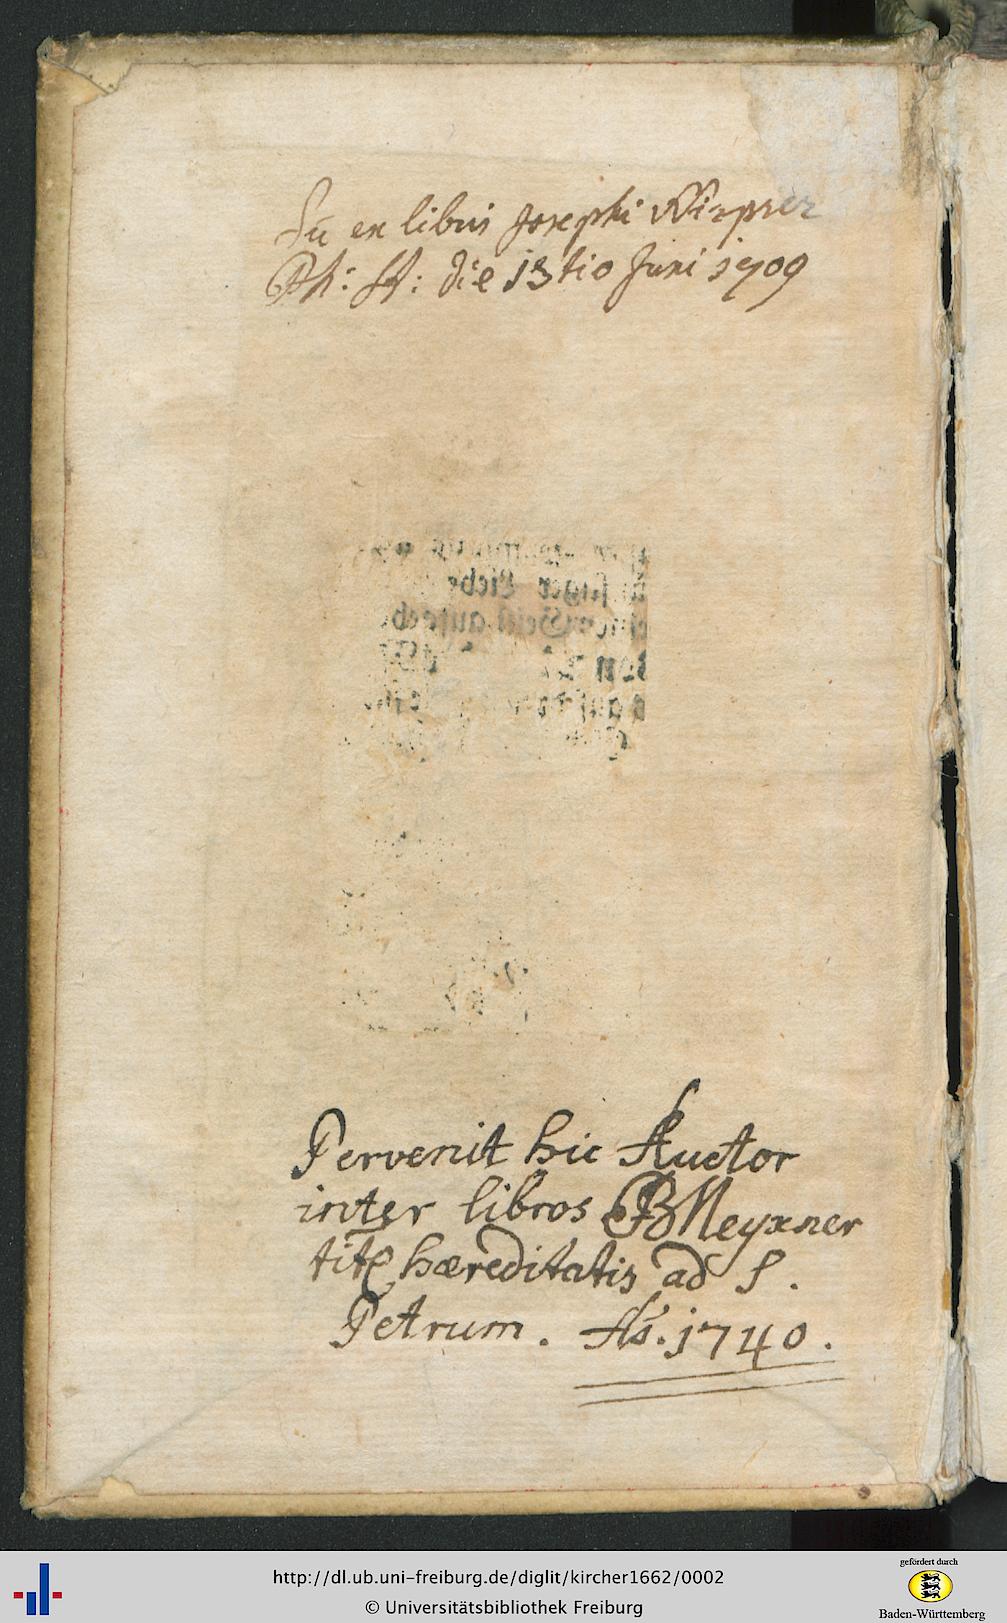 Sū ex libris Josephi
Ph: St: die 13tio Juni 1709
Pervenit hic Auctor
inter libros PBMeyxner
tit. hæreditatis ad S.
Petrum. Aō. 1740.
http://dl.ub.uni-freiburg.de/diglit/kircher1662/0002
© Universitätsbibliothek Freiburg
gefördert durch
Baden-Württemberg